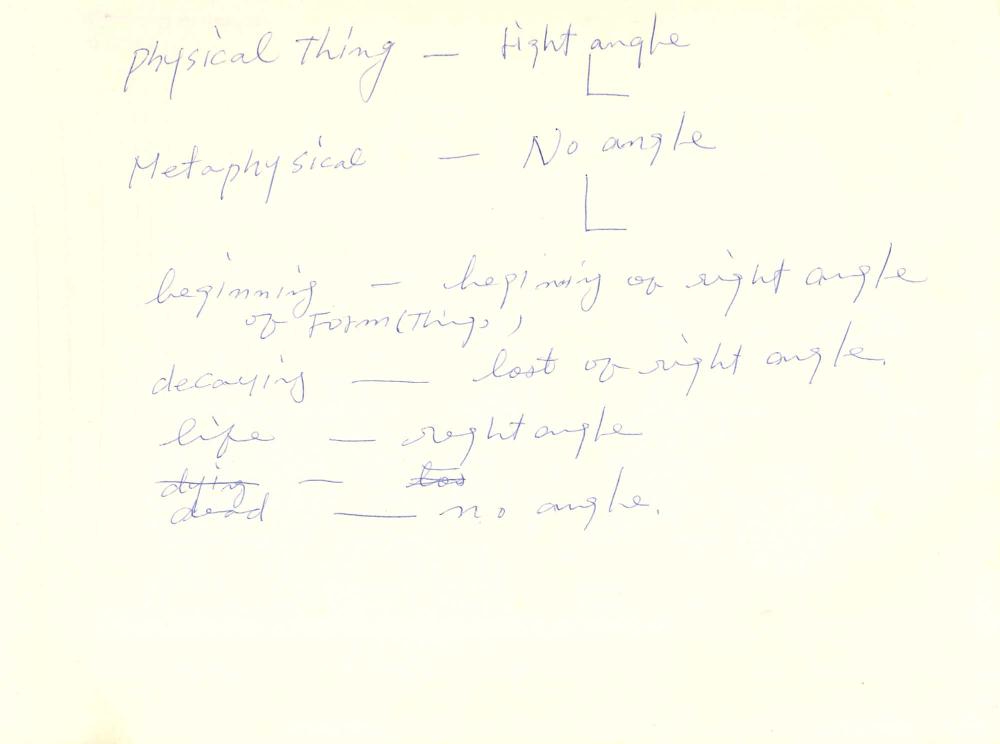 physical Thing — right angle
Metaphysical — No angle
beginning — begining of right angle
of Form (Things)
decaying — lost of right angle.
life — reght angle
dying — los
dead — no angle.